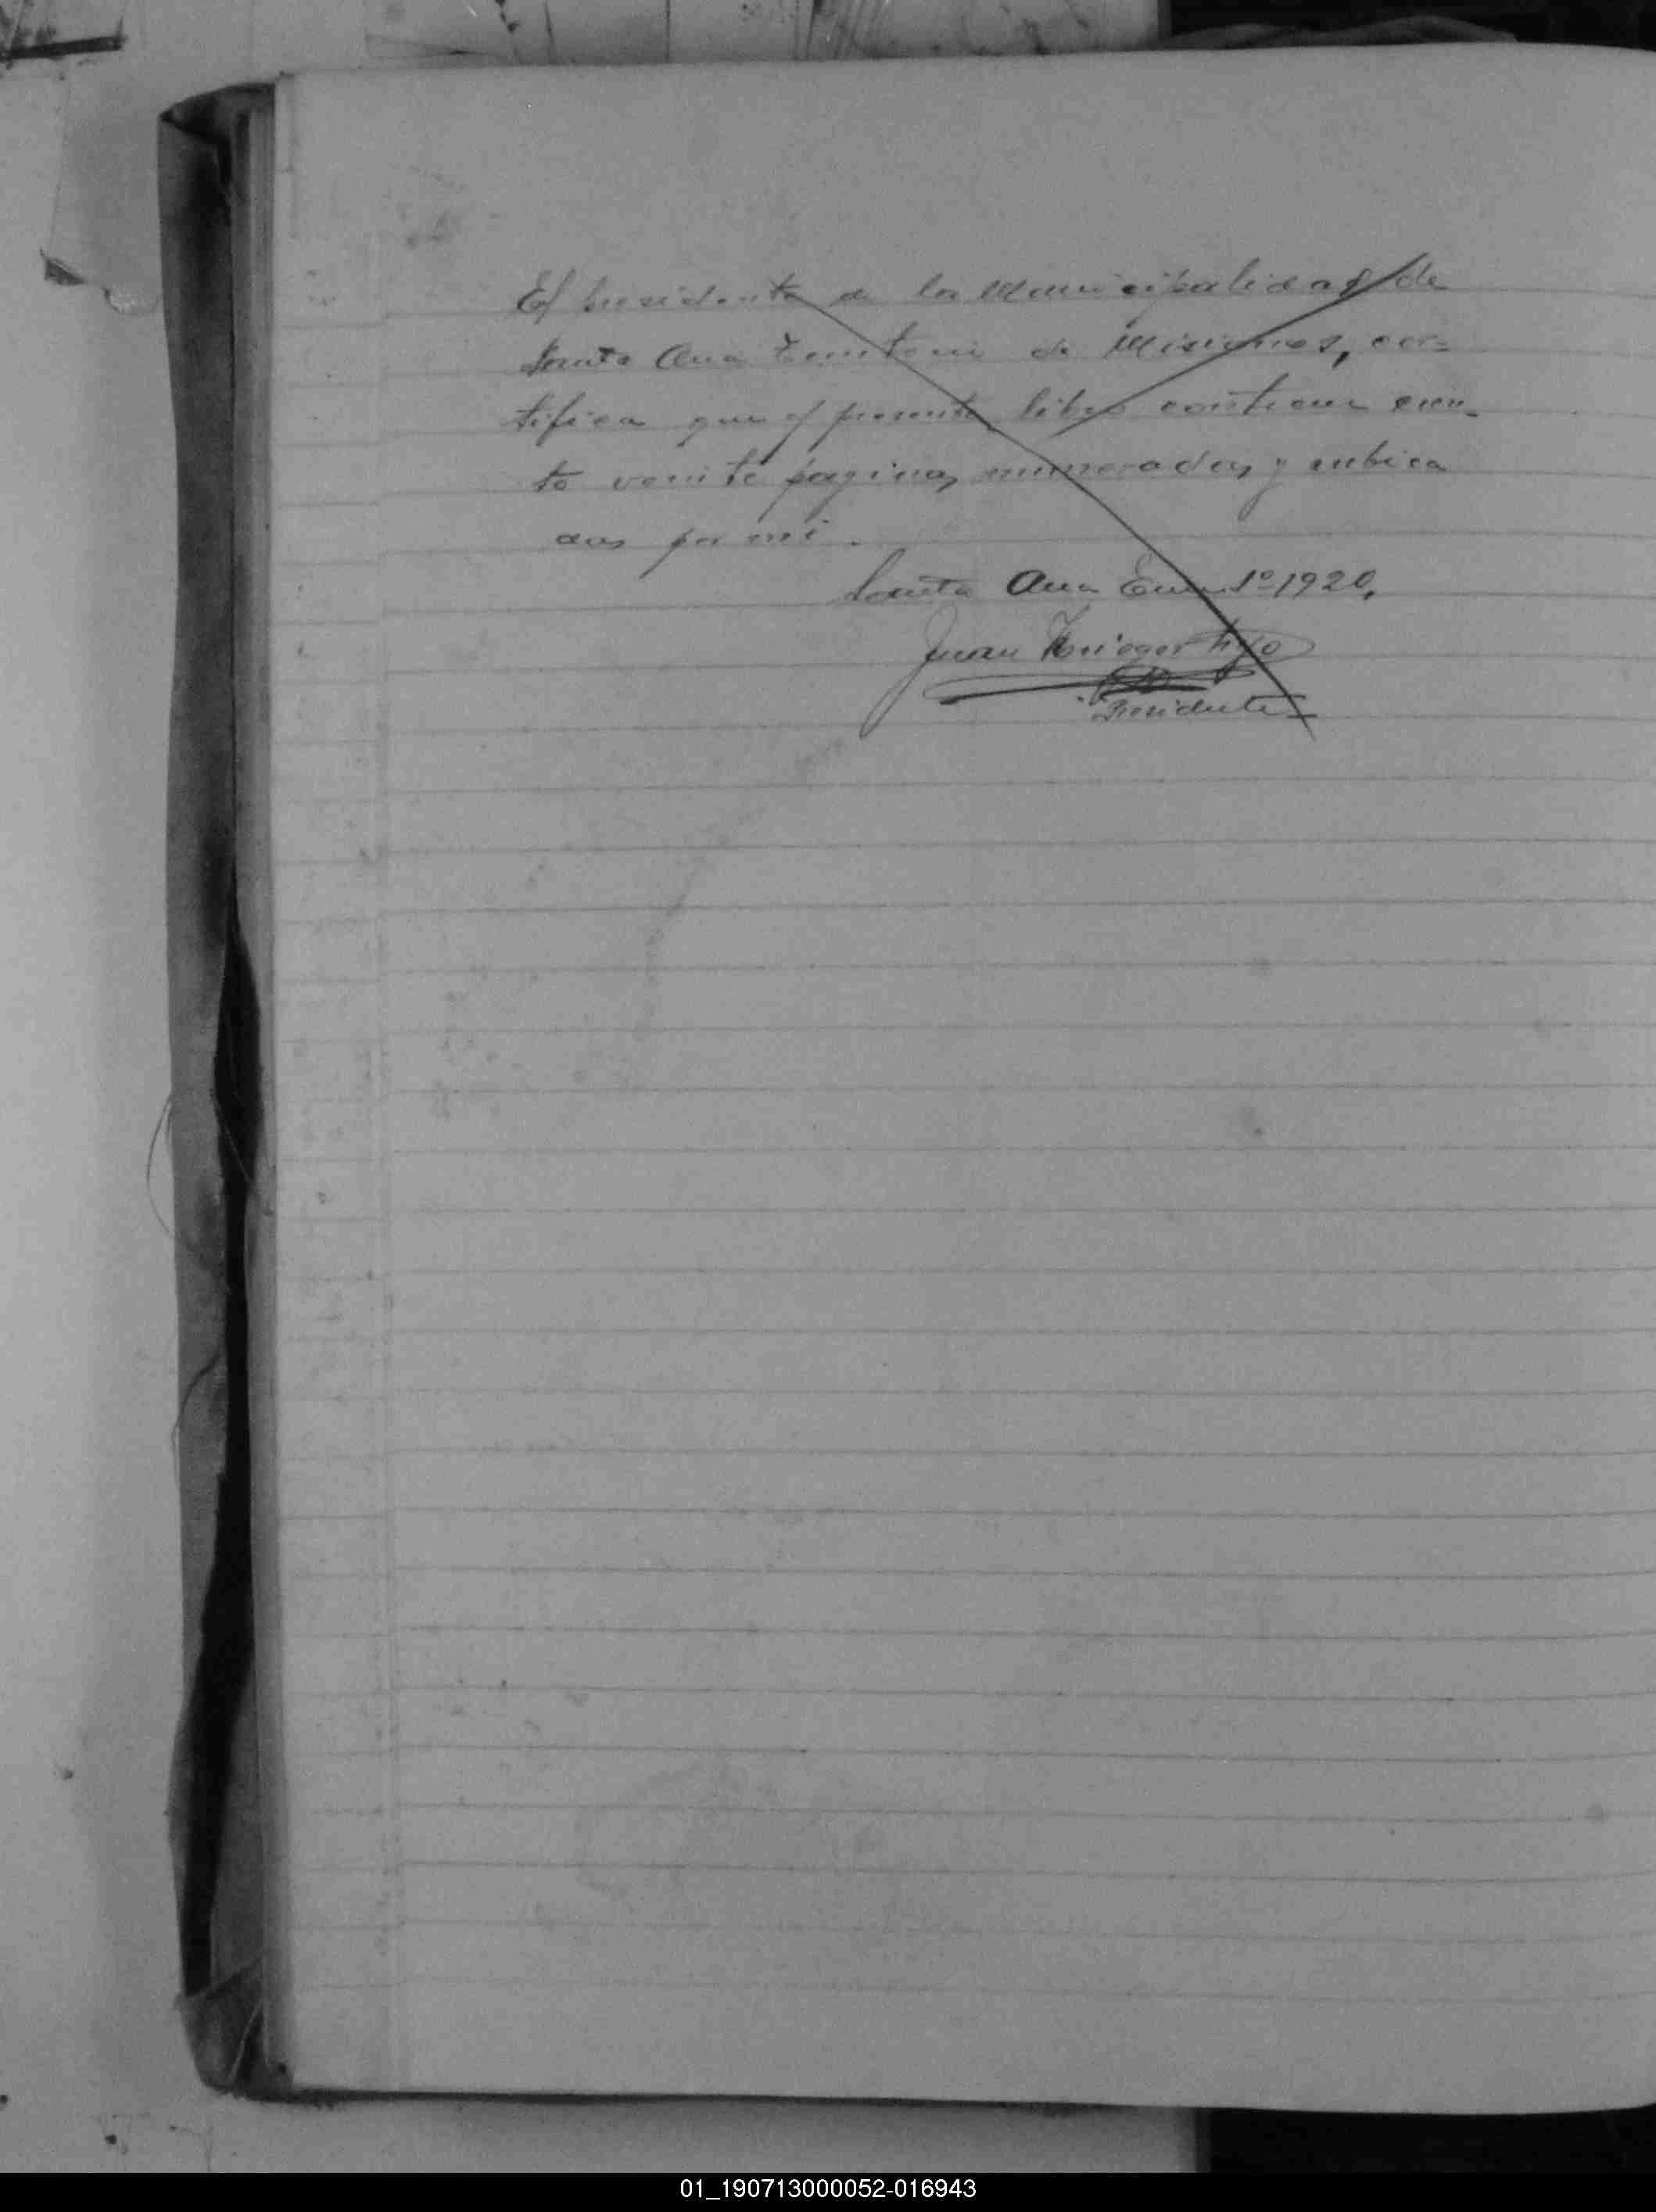 El presidente de la Municipalidad de
Santa Ana Territorio de Misiones, cer-
tifica que el presente libro contiene cien-
to veinte paginas numeradas y rubrica
das por mi.
Santa Ana Enero 1º 1920.
Juan Krieger hijo
Presidente
01_190713000052-016943